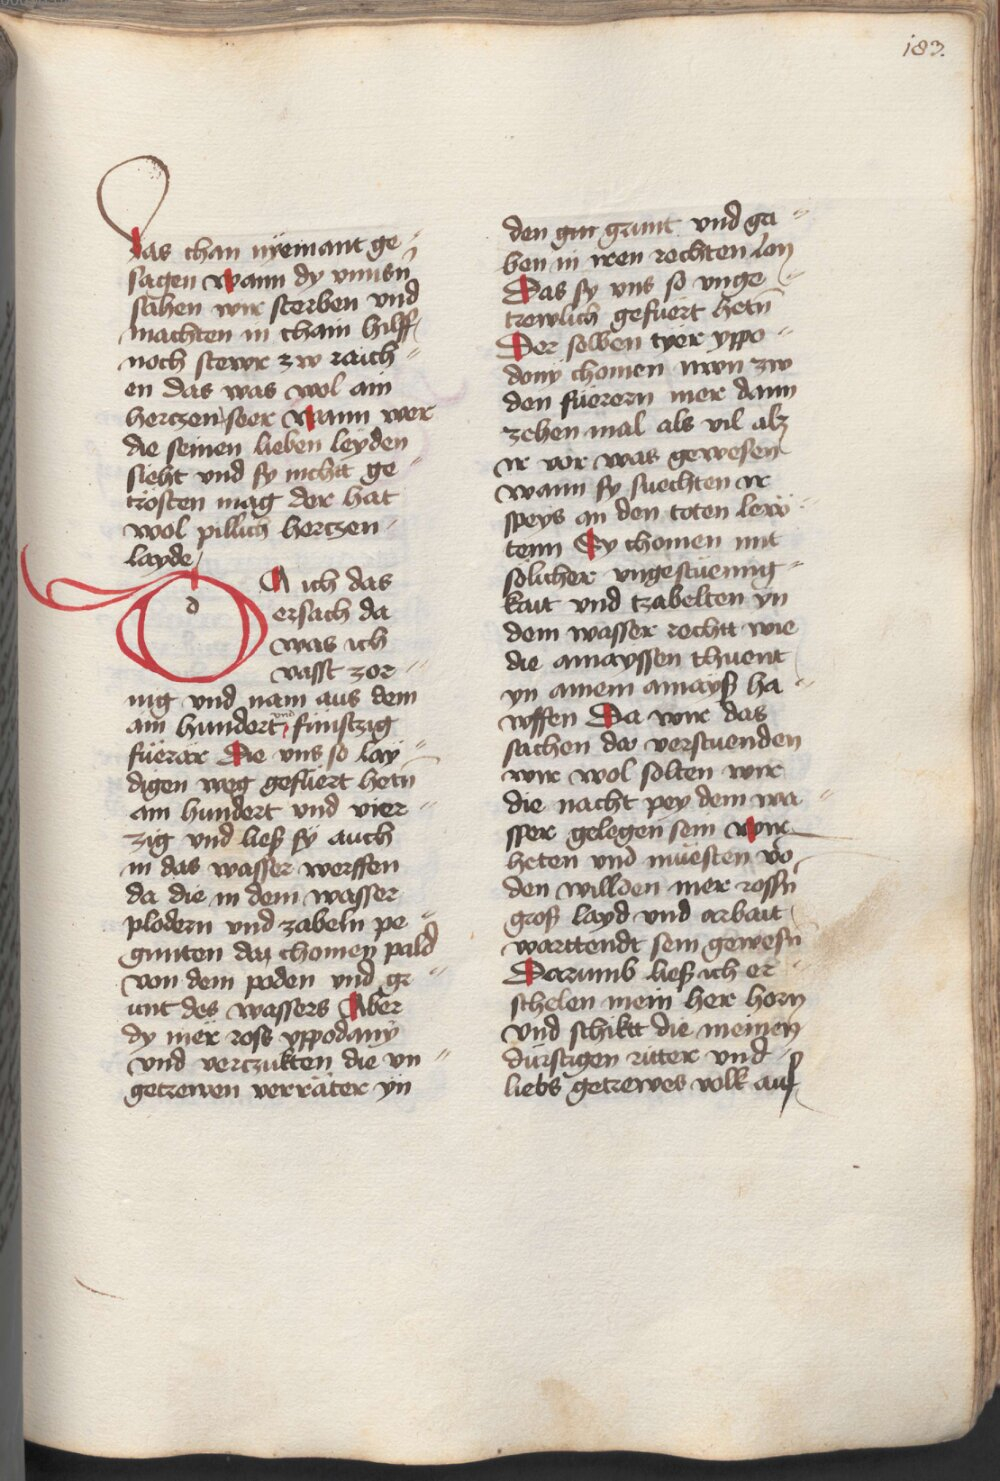 183.
das chan nyemant ge-
sagen wann dy vnnsñ
sahen wir sterben vnd
machten in chain hilff
noch stewr zw raich-
en das was wol ain
hertzen seer wann wer
die seinen lieben leyden
sieht vnd sy nichtt ge-
trösten mag der hat
wol pillich hertzen-
layde
d
A ich das
ersach da
was ich
vasst zor-
nig vnd nam aus dem
ain hundert vnd fünfftzig
füerär Die vns so lay-
digen weg gefüert hetñ
ain hundert vnd vier-
zig vnd ließ sy auch
in das wasser werffen
da die in dem wasser
plodern vnd zabeln pe-
gunten daz chomen pald
von dem poden vnd gr-
unt des wassers Aber
dy mer ross yppodamy
vnd verczukten die vn-
getrewen verräter yn
den grunt vnd ga-
ben in iren rechten lon
Das sy vns so vnge-
trewlich gefüert hetñ
Der selben tyer yppo-
domy chomen nwn zw
den füerern mer dann
zehen mal als vil alz
ir vor was gewesen
wann sy suechten ir
speys an den toten lew-
tenn Sy chomen mit
sölicher vngestüemig-
kait vnd tzabelten yn
dem wasser rechtt wie
die amayssen thuent
yn ainem amayß ha-
wffen Da wir das
sachen do verstuenden
wir wol solten wir
die nacht pey dem wa-
sser gelegen sein wir
heten vnd müesten vo
den willden mer rossñ
groß layd vnd arbait
warttendt sein gewesñ
Darumb ließ ich er-
schelen mein her horn
vnd schiktt die meinen
dürstigen ritter vnd
liebs getrewes volk auf